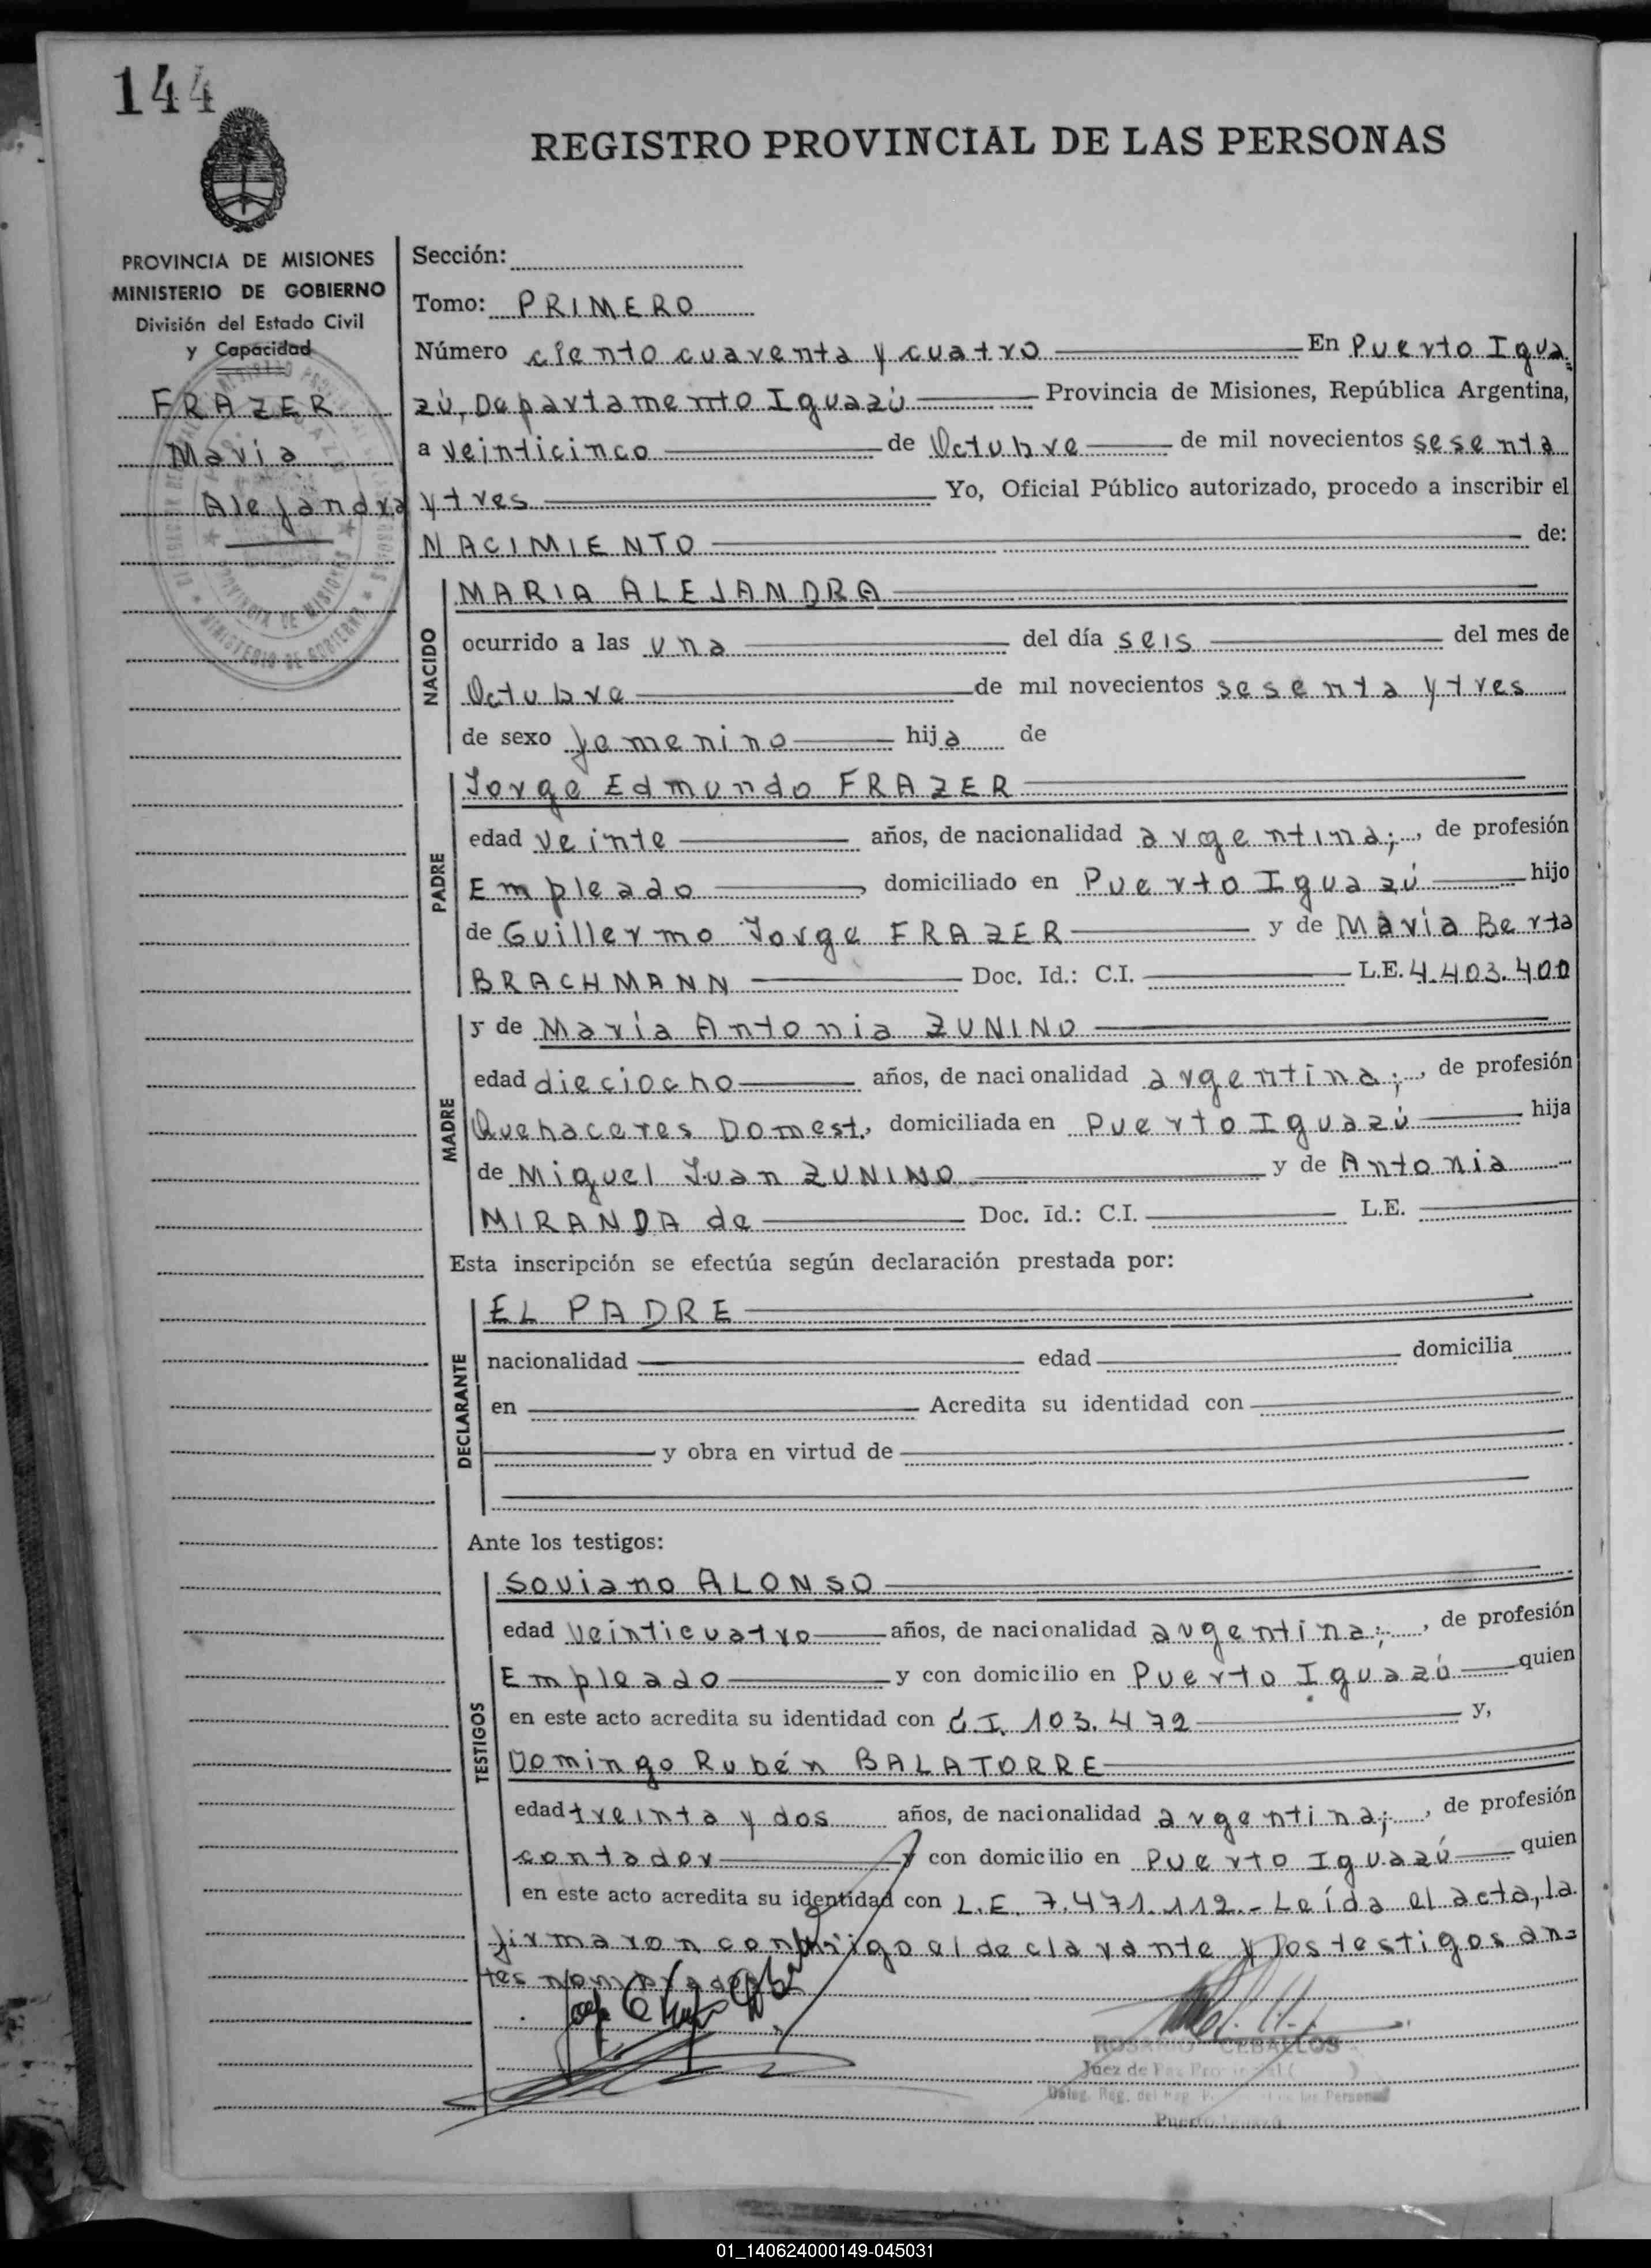 144
REGISTRO PROVINCIAL DE LAS PERSONAS
PROVINCIA DE MISIONES
MINISTERIO DE GOBIERNO
División del Estado Civil
y Capacidad
FRAZER
María
Alejandra
Sección:
Tomo: PRIMERO
Número ciento cuarenta y cuatro En Puerto Igua=
zú, Departamento Iguazú Provincia de Misiones, República Argentina,
a veinticinco de Octubre de mil novecientos sesenta
y tres Yo, Oficial Público autorizado, procedo a inscribir el
NACIMIENTO de:
NACIDO
MARIA ALEJANDRA
ocurrido a las una del día seis del mes de
Octubre de mil novecientos sesenta y tres
de sexo femenino hija de
PADRE
Jorge Edmundo FRAZER
edad veinte años, de nacionalidad argentina;, de profesión
Empleado, domiciliado en Puerto Iguazú hijo
de Guillermo Jorge FRAZER y de María Berta
BRACHMANN Doc. Id.: C.I. L.E. 4.403.400
MADRE
y de María Antonia ZUNINO
edad dieciocho años, de nacionalidad argentina;, de profesión
Quehaceres Domest., domiciliada en Puerto Iguazú hija
de Miguel Juan ZUNINO y de Antonia
MIRANDA de Doc. Id.: C.I. L.E.
Esta inscripción se efectúa según declaración prestada por:
DECLARANTE
EL PADRE
nacionalidad edad domicilia
en Acredita su identidad con
y obra en virtud de
Ante los testigos:
TESTIGOS
Soviano ALONSO
edad veinticuatro años, de nacionalidad argentina;, de profesión
Empleado y con domicilio en Puerto Iguazú quien
en este acto acredita su identidad con C.I. 103.472 y,
Domingo Rubén BALATORRE
edad treinta y dos años, de nacionalidad argentina;, de profesión
contador y con domicilio en Puerto Iguazú quien
en este acto acredita su identidad con L.E. 7.471.112.- Leída el acta, la
firmaron conmigo el declarante y los testigos an=
tes nombrados
ROSARIO CEBALLOS
Juez de Paz
Puerto Iguazú
01_140624000149-045031